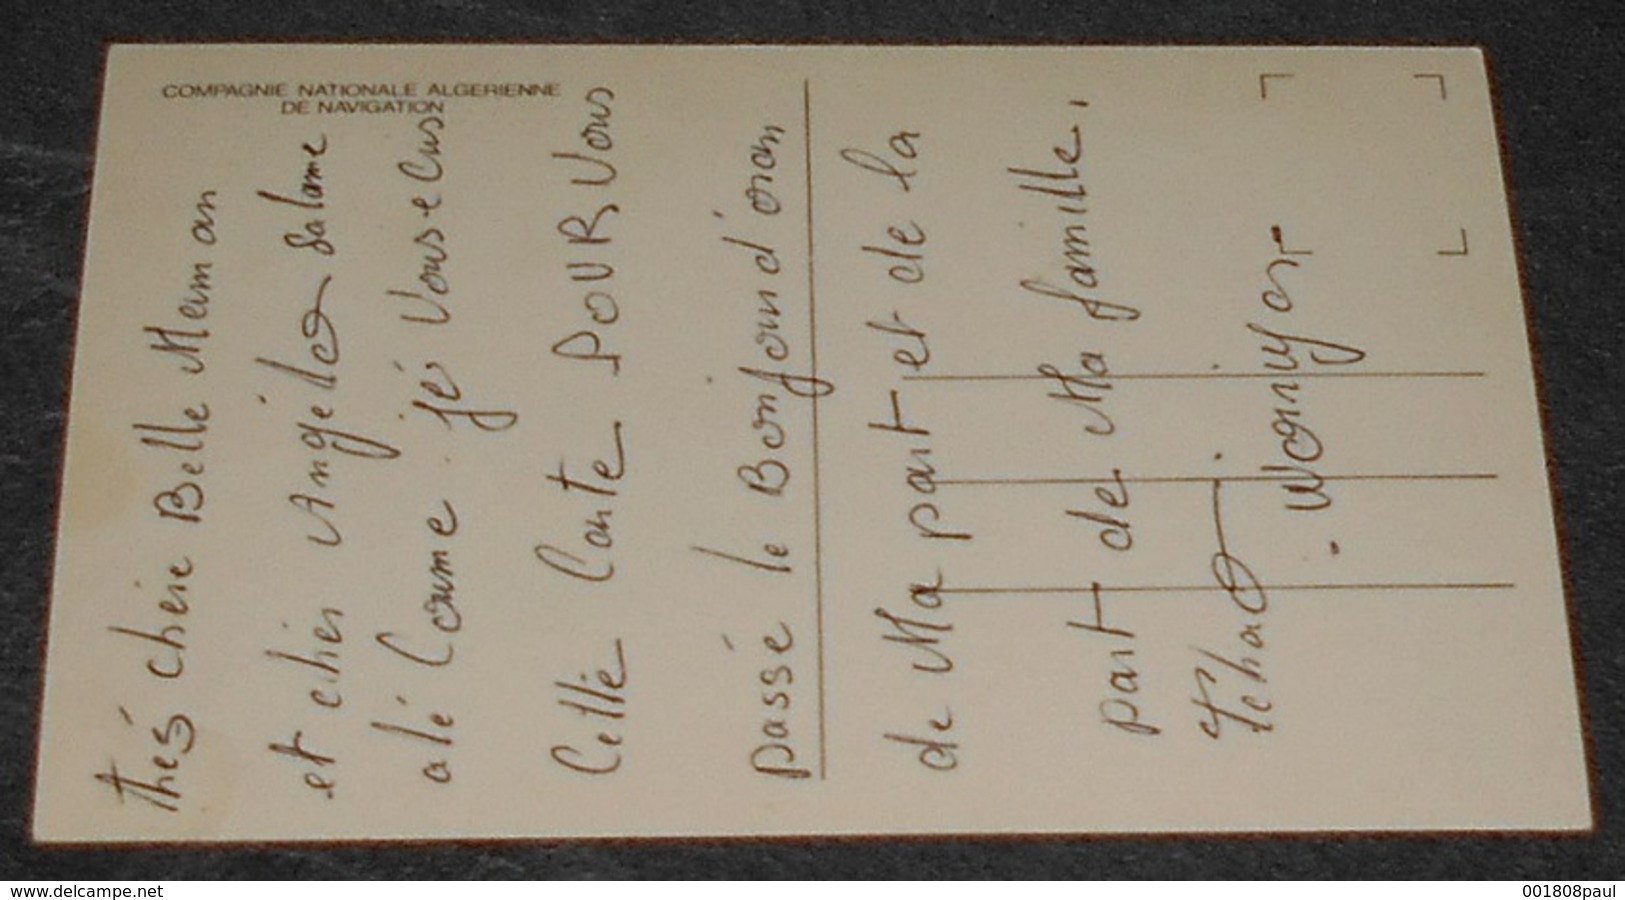 COMPAGNIE NATIONALE ALGERIENNE
DE NAVIGATION
thés chéie Belle Maman
et chér Angélo Salame
alé Come. jé Vous
Cette Carte POUR Vous
passé le Bonjour d'oran
de Ma part et de la
part de Ma famille.
www.delcampe.net
001808paul